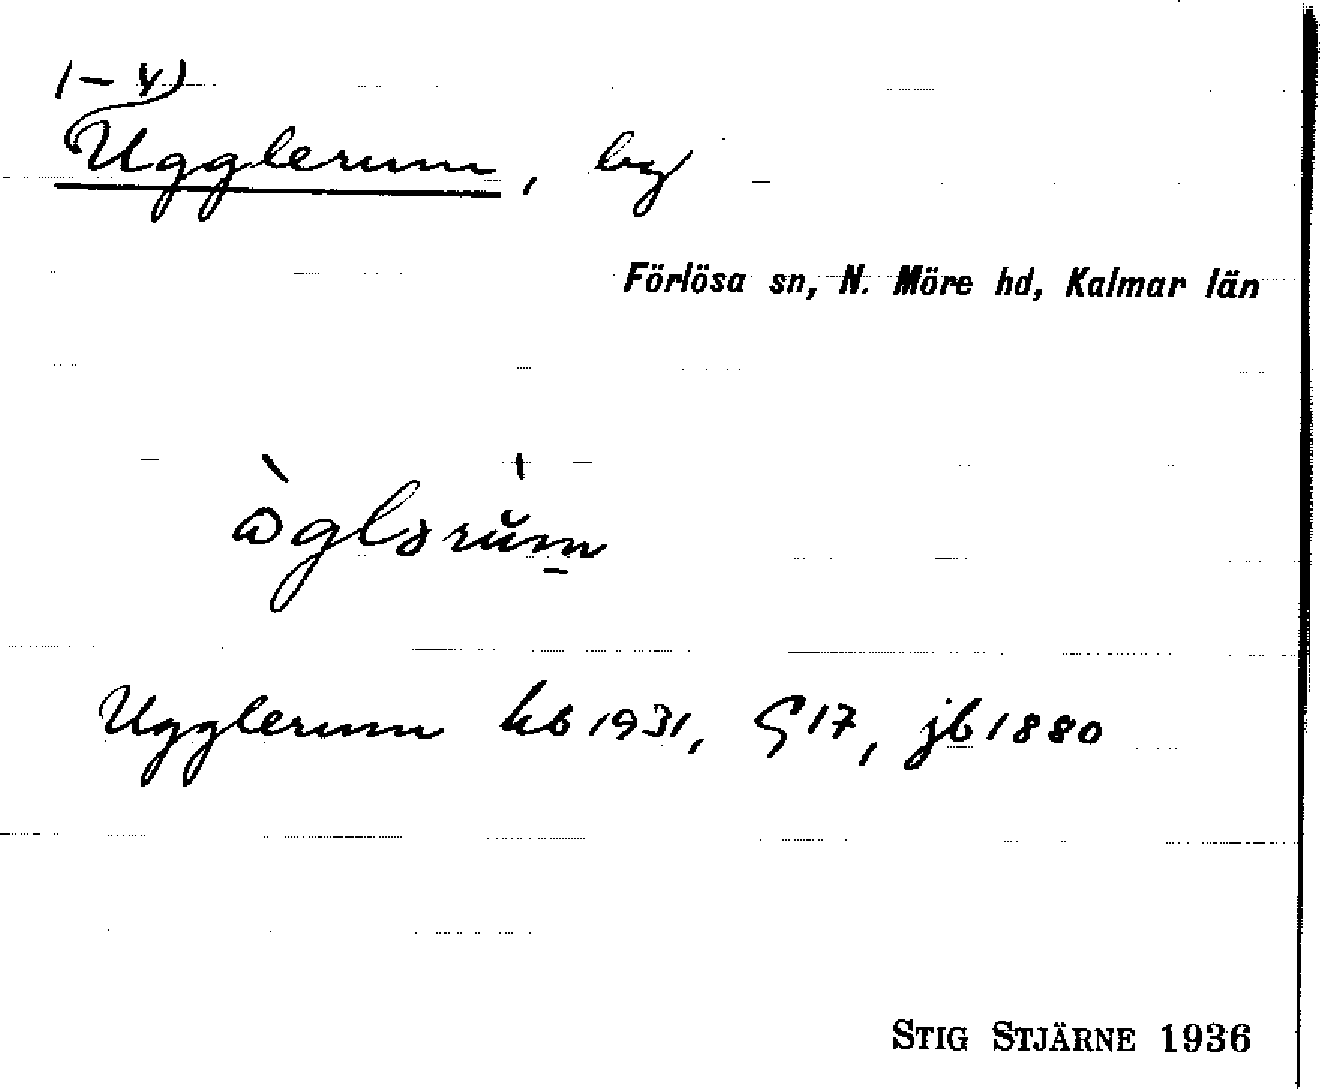 1–4)
Ugglerum, by
Förlösa sn, N. Möre hd, Kalmar län
Ugglerum hb 1931, G 17, jb 1880
STIG STJÄRNE 1936